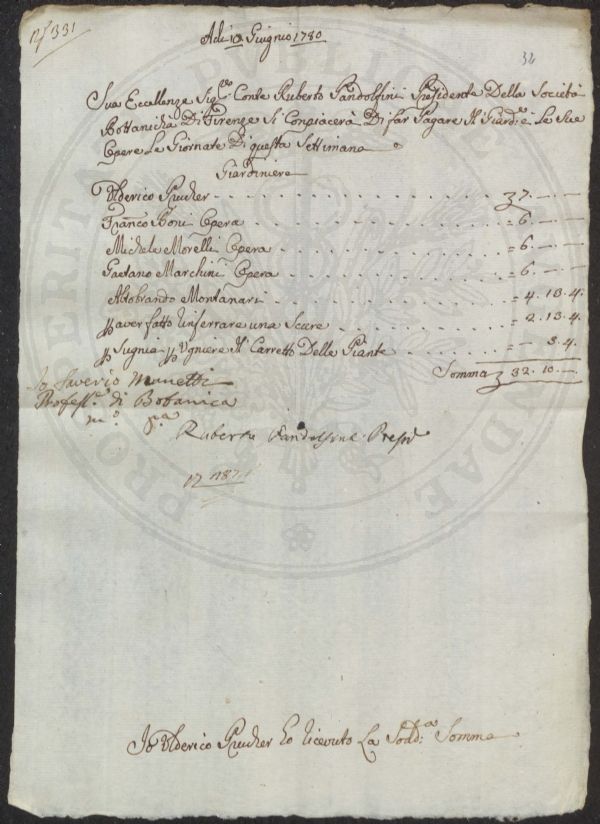 N° 331
Adi 10 Giugnio 1780
32
Sua Eccellenze Sig.re Conte Ruberto Pandolfini Presidente Della Società
Bottanicha Di Firenze Si Conpiacerà Di far Pagare Al Giard.e Le Sue
Opere Le Giornate Di questa Settimana
Giardiniere
Ulderico Prucher 7. — —
Franc.o Boni Opera = 6. — —
Michele Morelli Opera = 6. — —
Gaetano Marchini Opera = 6. — —
Altobrando Montanari = 4. 13. 4.
P aver fatto Rinferrare una Scure = 2. 13. 4.
P Sugnia P Ugniere Il Carretto Delle Piante = — 3. 4.
Somma 32. 10. —
Io Saverio Manetti
Profess.e di Botanica
m.o p.a
Ruberto Pandolfini Presid
N 187
Io Ulderico Prucher Ho Ricevuto La Sodd.a Somma
PRO PUBLICAE PROSPERITATIS